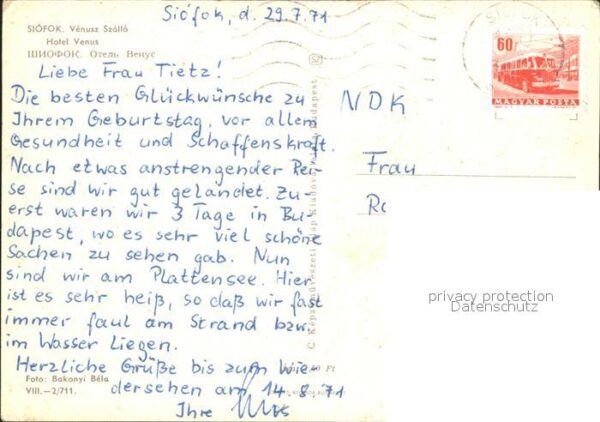 Siófok, d. 29.7.71
SIÓFOK. Vénusz Szálló
Hotel Venus
ШИОФОК. Отель Венус
Liebe Frau Tietz!
Die besten Glückwünsche zu
Ihrem Geburtstag, vor allem
Gesundheit und Schaffenskraft.
Nach etwas anstrengender Rei-
se sind wir gut gelandet. Zu-
erst waren wir 3 Tage in Bu-
dapest, wo es sehr viel schöne
Sachen zu sehen gab. Nun
sind wir am Plattensee. Hier
ist es sehr heiß, so daß wir fast
immer faul am Strand bzw.
im Wasser liegen.
Herzliche Grüße bis zum Wie-
dersehen am 14.8.71
Ihre
Foto: Bakonyi Béla
VIII.—2/711.
60f
MAGYAR POSTA
NDK
Frau
privacy protection
Datenschutz